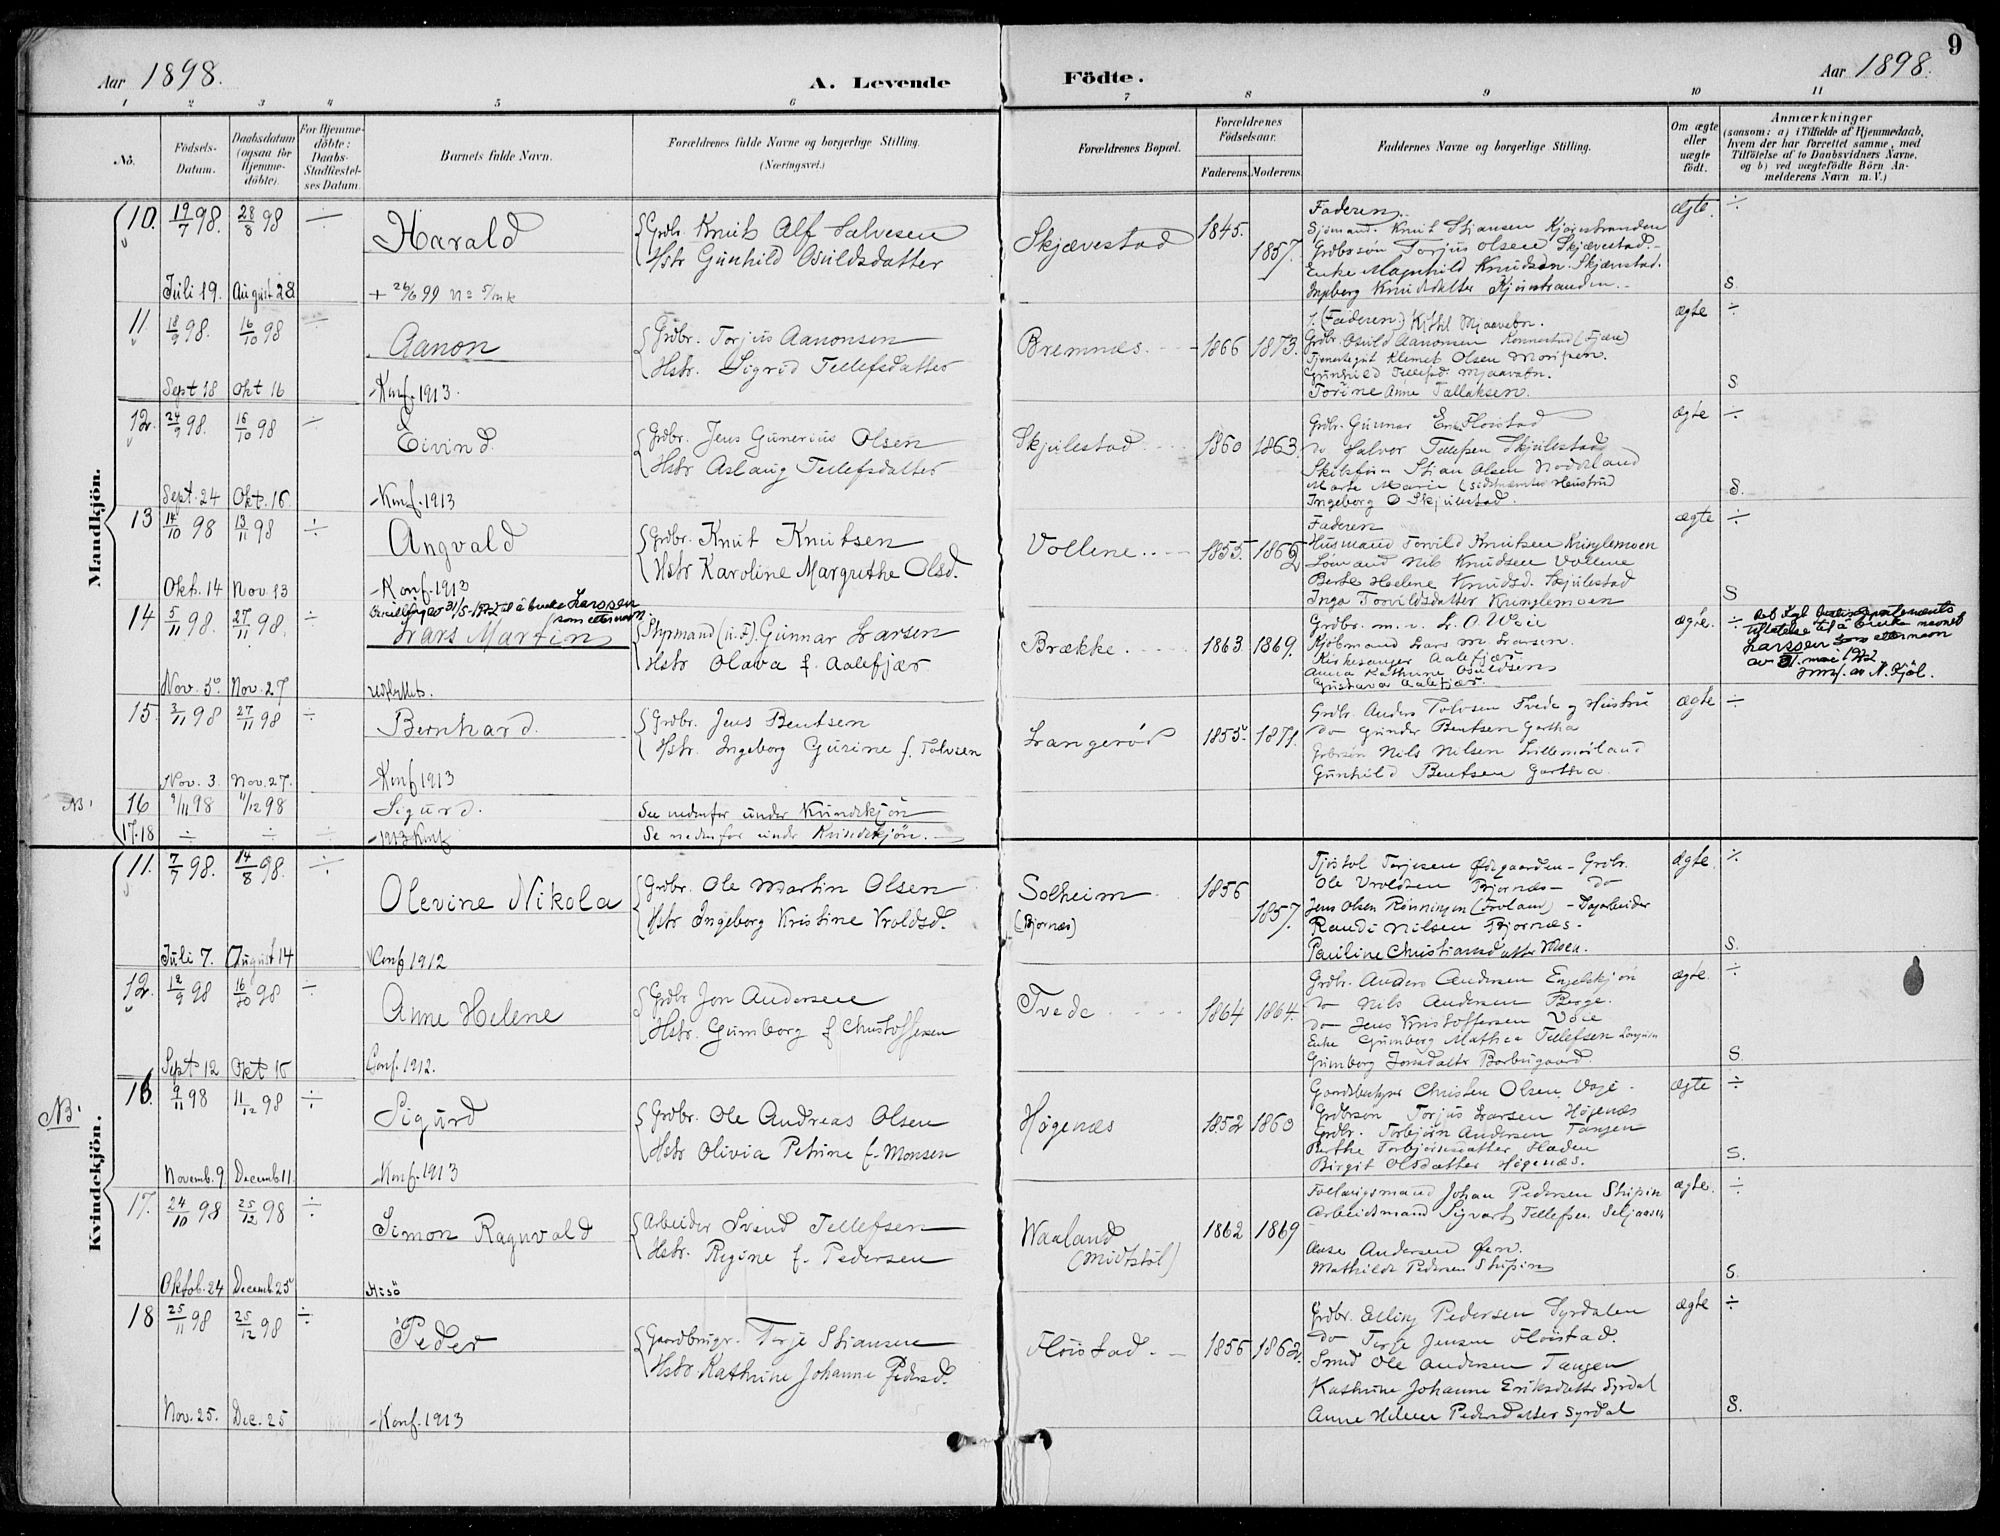 Aar 1898.
A. Levende Födte.
Aar 1898.
9
1 2 3 4 5 6 7 8 9 10 11
Nö.
Födsels-Datum.
Daabsdatum (ogsaa for Hjemme-döbte).
For Hjemme-döbte: Daabs-Stadfæstel-ses Datum.
Barnets fulde Navn.
Forældrenes fulde Navne og borgerlige Stilling. (Næringsvei.)
Forældrenes Bopæl.
Forældrenes Födselsaar.
Faderens. Moderens.
Faddernes Navne og borgerlige Stilling.
Om ægte eller uægte födt.
Anmærkninger
(saasom: a) i Tilfælde af Hjemmedaab, hvem der har forrettet samme, med Tilföielse af to Daabsvidners Navne, og b) ved uægtefödte Börn An-melderens Navn m. V.)
Mandkjön.
10. 19/7 98. 28/8 98 ÷ Harald
Grdbr. Knut Alf Salvesen
Hstr Gunhild Osuldsdatter
Juli 19. August 28
+ 26/6 99
Skjævestad 1845. 1857.
Faderen.
Sjömand. Knut Stiansen Kjörestranden
Grdbrsön Torjus Olsen Skjævestad.
Enke Magnhild Knudsen. Skjævestad.
Ingeborg Knudsdatter
ægte. ÷
S.
11 18/9 98. 16/10 98 ÷ Aanon
Grdbr. Torjus Aanonsen
Hstr. Sigrid Tellefsdatter
Sept 18 Okt 16
Konf. 1913.
Bremnæs. 1866 1873.
(Faderen)
Grdbr. Osuld Aanonsen
Tjenestegut Klemet Olsen
Gunhild
Torine Anne Tallaksen.
ægte ÷
S
12. 24/9 98. 16/10 98 ÷ Eivind.
Grdbr. Jens Gunerius Olsen
Hstr Aslaug Tellefsdatter
Sept. 24 Okt. 16
Konf. 1913
Skjulestad 1860 1863.
Grdbr. Gunnar Floistad
do Halvor Tellefsen Skjulestad
Stian Olsen
Marte Marie
Ingeborg O Skjulestad.
ægte ÷
S.
13 14/10 98 13/11 98 ÷ Angvald
Grdbr. Knut Knutsen
Hstr Karoline Margrethe Olsd.
Okt. 14 Nov. 13
Konf. 1913
Vollene. 1855. 1862
Faderen
Husmand Torvild Knutsen Kringlemoen
Sömand Nils Knudsen Vollene
Berte Helene Knudsd. Skjulestad
Inga Torvildsdatter Kringlemoen
ægte ÷
S
14 5/11 98. 27/11 98. ÷
31/5-1922 til å bruke Larssen (som etternavn
Lars Martin
Styrmand (u.F). Gunnar Larsen
Hstr Olava f. Aalefjær
Nov. 5. Nov. 27
Brække. 1863 1869.
Grdbr.
Kjöbmand Lars M. Larsen.
Kirkesanger Aalefjær
Anna Kathrine Osuldsen
Gustava Aalefjær.
ægte. ÷
tillatelse til å bruke navnet
Larssen som etternavn
av 31. mai 1922
15. 3/11 98 27/11 98 ÷ Bernhard.
Grdbr. Jens Bentsen
Hstr. Ingeborg Gurine f. Tolvsen
Nov. 3. Nov. 27.
Konf 1913
Langeröd 1855. 1871.
Grdbr. Anders Tolvsen Tvede og Hustru
do Gunder Bentsen Gartha
Grdbrsön Nils Nilsen Lillemöland
Gunhild Bentsen Gartha.
ægte ÷
NB! 16 9/11 98 11/12 98 Sigurd. See nedenfor under Kvindekjön
17.18 ÷ ÷ ÷ 1913 Konf Se nedenfor under Kvindekjön.
Kvindekjön.
11. 7/7 98. 14/8 98. ÷ Olevine Nikola
Grdbr. Ole Martin Olsen
Hstr Ingeborg Kristine Vroldsd.
Juli 7. August 14
Conf 1912
Solheim (Bjornæs) 1856 1857.
Tjöstol Terjesen Ödegaarden - Grdbr.
Ole Vroldsen Bjornæs - do
Jens Olsen Rønningen - Dagarbeider
Randi Nilsen Bjornæs.
Pauline Christiansdatter
ægte. ÷
S.
12. 12/9 98 16/10 98 ÷ Anne Helene
Grdbr Jon Andersen
Hstr. Gumborg f Christoffersen
Sept 12 Okt 16
Conf. 1912.
Tvede 1864 1864.
Grdbr. Anders Andersen Engelskjön
do Nils Andersen Berge.
do Jens Kristoffersen Voie
Enke Gumborg Mathea Tellefsen
Gumborg Jonsdatter
ægte. ÷
S.
NB! 16. 9/11 98 11/12 98 ÷ Sigurd
Grdbr. Ole Andreas Olsen
Hstr Olivia Petrine f. Monsen
Novemb. 9 Decemb. 11.
Konf. 1913
Högenæs 1852 1860
Gaardbestyrer Christen Olsen. Voje.
Grdbrsön Torjus Larsen Högenæs
Grdbr. Torbjörn Andersen Tangen
Berthe Torbjörnsdatter Fladen
Birgit Olsdatter Högenæs.
ægte ÷
S.
17. 24/10 98 25/12 98 ÷ Simon Ragnvald
Arbeider Svend Tellefsen
Hstr. Regine f. Pedersen
Oktob. 24 Decemb. 25
Hisö
Waaland (Midtstöl) 1862 1869
Johan Pedersen Stupin
Arbeidsmand Sigvart Tellefsen.
Aase Andersen
Mathilde Pedersen Stupin
ægte. ÷
S.
18 25/11 98 25/12 98 ÷ Peder
Gaardbrugr. Terje Stiansen
Hstr Kathrine Johanne Pedersd.
Nov. 25. Dec. 25
Konf. 1913
Flöistad. 1856 1862.
Grdbr. Elling Pedersen Syrdalen
do Terje Jensen Flöistad.
Smed Ole Andersen Tangen
Kathrine Johanne Eriksdatter Syrdal
Anne Helene Pedersdatter Syrdal
ægte ÷
S.